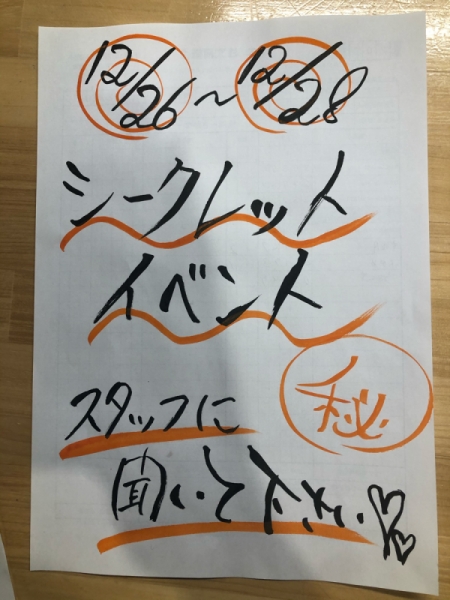 12/26〜12/28
シークレット
イベント
秘
スタッフに
聞いて下さい